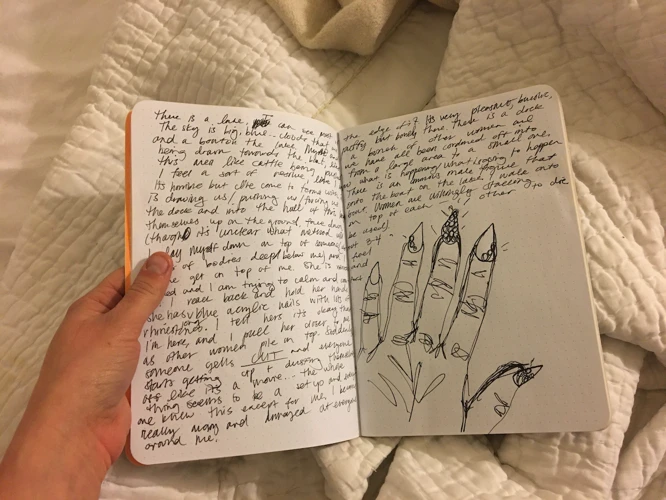 There is a lake. I can see just
The sky is big, blue.. clouds that
and a boat on the lake. Myself and
being drawn towards the boat, like
this area like cattle being
I feel a sort of resolve, like I
Its horrible but I've come to terms with
is drawing us / pushing us / forcing us
the dock and into the hull of this
themselves up on the ground, down
(though it's unclear what method will
lay myself down on top of
of bodies deep below me) and
get on top of me. She is
and I am trying to calm and
I reach back and hold her hand
she has blue long acrylic nails with lots of
rhinestones. I tell her its okay that
I'm here, and I pull her closer to me
as other women pile on top. Suddenly
someone yells CUT and everyone
starts getting up + dusting themselves
off like its a movie... the whole
thing seems to be a set up and every
one knew this except for me. I become
really angry and enraged at everyone
around me.
the edge of it? Its very pleasant, bucolic,
puffy but lonely there. There is a dock
a bunch of other women and
we have all been cordoned off into
from a large area to a small one.
know what is happening, what is going to happen
There is an amorphous male figure that
onto the boat on the lake. I walk onto
boat. Women are willingly stacking
on top of each other to die
be used).
3-4
feel
and